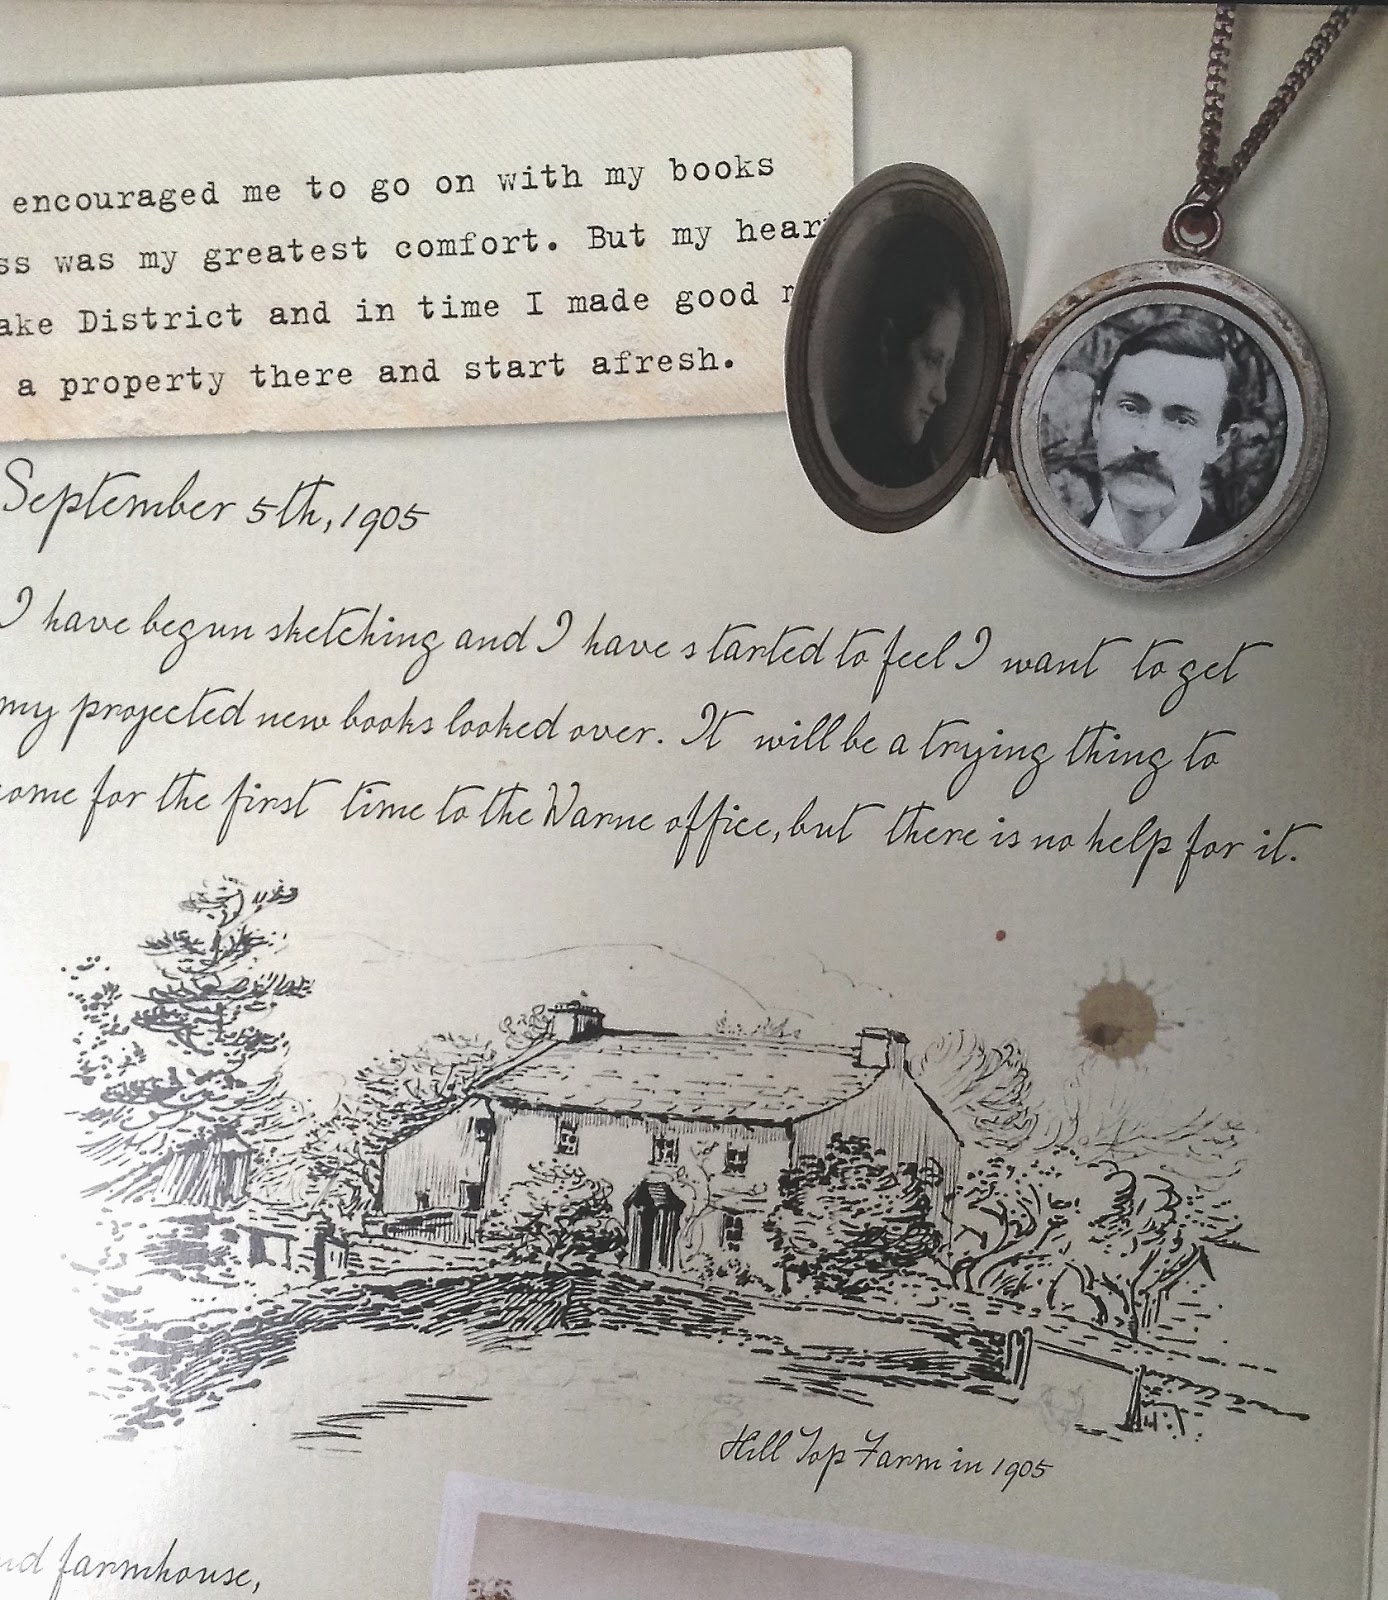 encouraged me to go on with my books
ss was my greatest comfort. But my hear
ake District and in time I made good
a property there and start afresh.
September 5th, 1905
I have begun sketching and I have started to feel I want to get
my projected new books looked over. It will be a trying thing to
come for the first time to the Warne office, but there is no help for it.
Hill Top Farm in 1905
farmhouse,